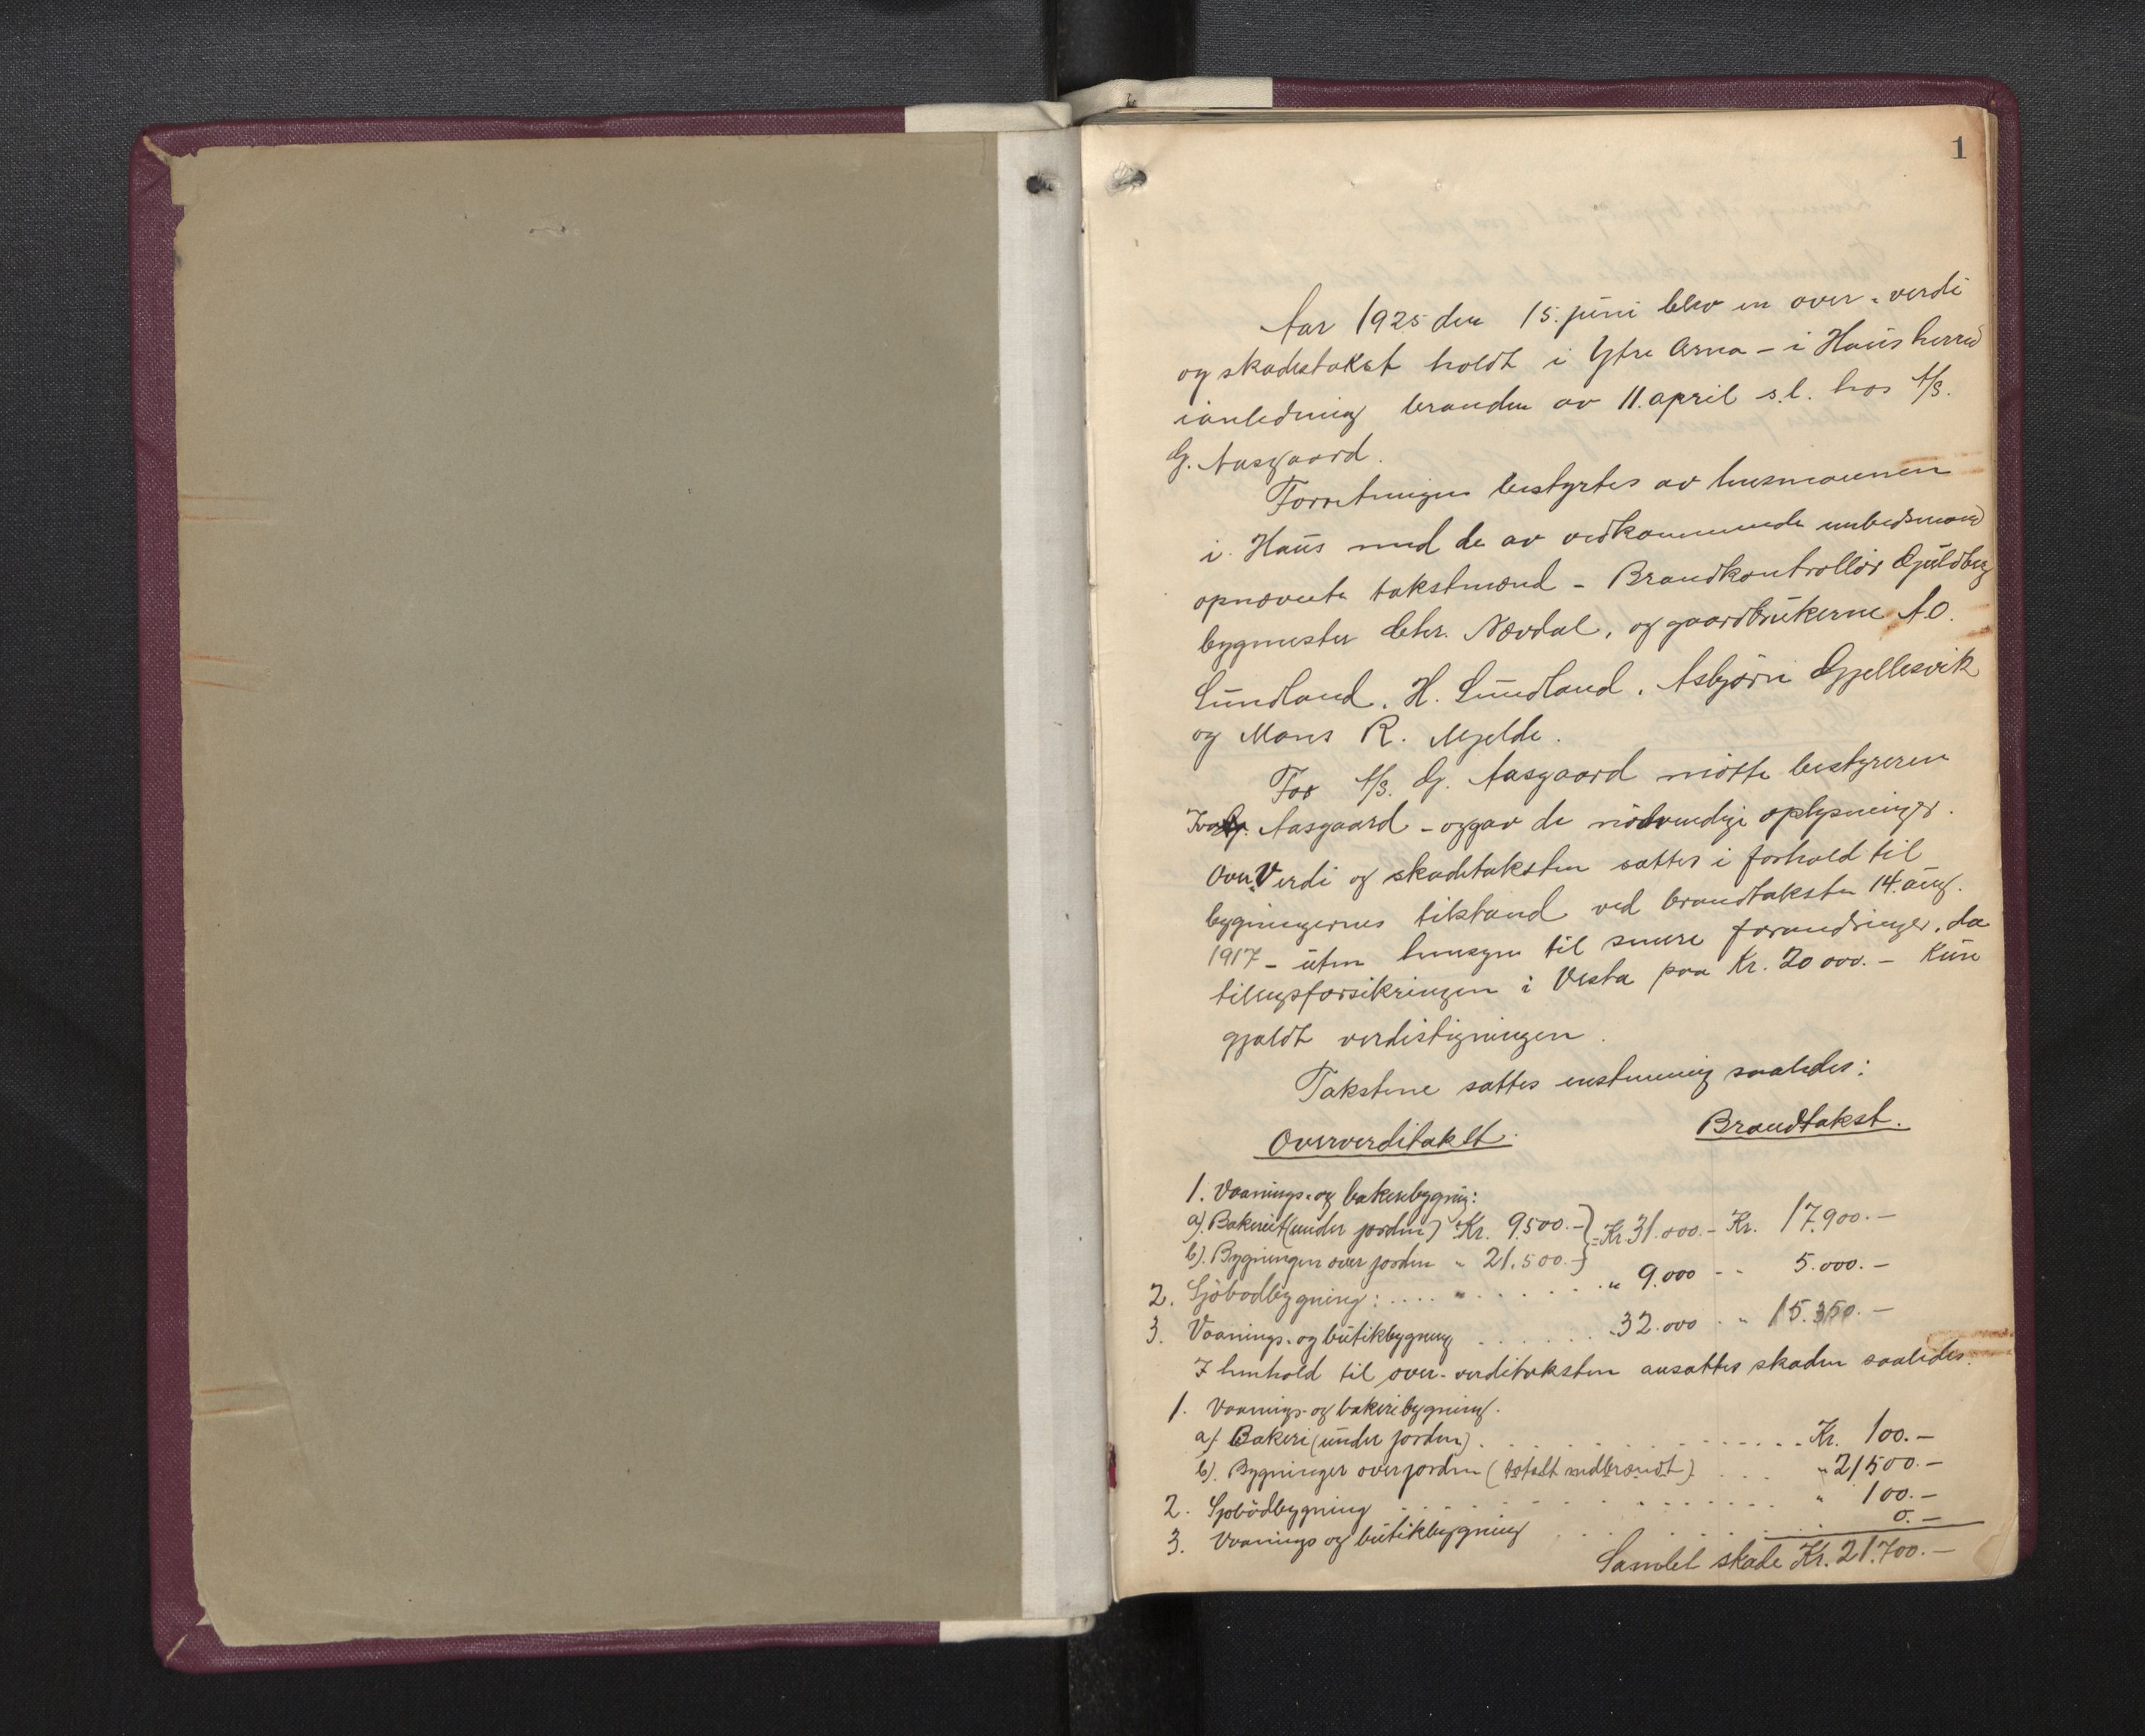 1
Aar 1925 den 15. juni blev en over-verdi
og skadetakst holdt i Ytre Arna – i Haus herred
ianledning branden av 11. april s.l. hos A/S.
G. Aasgaard.
Forretningen bestyrtes av lensmannen
i Haus med de av vedkommende umbudsmand
opnævnte takstmænd – Brandkontrollør Guldberg
bygmester Chr. Nævdal, og gaardbrukerne A O.
Lundland, H. Lundland, Asbjørn Gjellesvik
og Mons R. Mjelde.
For A/S. G. Aasgaard møtte bestyreren
Aasgaard – og gav de nødvendige oplysninger.
Over-Verdi og skadetaksten sattes i forhold til
bygningernes tilstand ved brandtaksten 14. aug.
1917 – uten hensyn til smere forandringer, da
tillegsforsikringen i Vesta paa Kr. 20 000.– kun
gjaldt verdistigningen.
Takstene sattes enstemmig saaledes:
Oververditakst. Brandtakst.
1. Vaanings- og bakeribygning:
a). Bakeriet (under jorden) Kr. 9.500.– } = Kr. 31.000.– Kr. 17.900.–
b). Bygningen over jorden " 21.500.– }
2. Sjøbodbygning: .... " ...... " 9.000 - - 5.000.–
3. Vaanings- og butikbygning ...... " 32.000 - " 15.350.–
I henhold til over-verditaksten ansattes skaden saaledes:
1. Vaanings- og bakeribygning.
a). Bakeri (under jorden) ........ Kr. 100.–
b). Bygninger over jorden (totalt nedbrændt) .... " 21500.–
2. Sjobodbygning ........ " 100.–
3. Vaanings og butikbygning ........ 0.–
Samlet skade Kr. 21.700.–